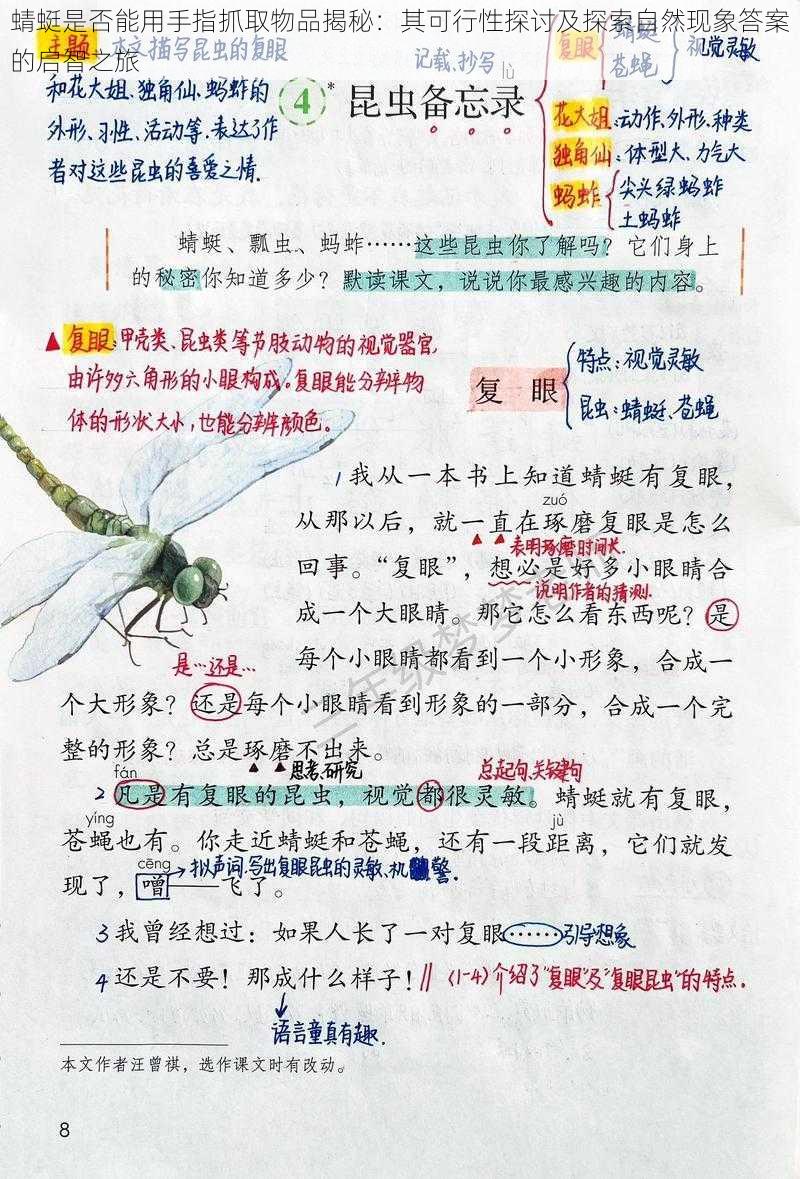 蜻蜓是否能用手指抓取物品揭秘：其可行性探讨及探索自然现象答案
的启智之旅
主题 本文描写昆虫的复眼
和花大姐、独角仙、蚂蚱的
外形、习性、活动等.表达了作
者对这些昆虫的喜爱之情.
记载、抄写
lù
4* 昆虫备忘录
复眼 蜻蜓 苍蝇 视觉灵敏
花大姐:动作、外形、种类
独角仙:体型大、力气大
蚂蚱 尖头绿蚂蚱
土蚂蚱
蜻蜓、瓢虫、蚂蚱……这些昆虫你了解吗？它们身上
的秘密你知道多少？默读课文，说说你最感兴趣的内容。
▲复眼:甲壳类、昆虫类等节肢动物的视觉器官,
由许多六角形的小眼构成。复眼能分辨物
体的形状大小,也能分辨颜色。
复 眼
特点:视觉灵敏
昆虫:蜻蜓、苍蝇
1我从一本书上知道蜻蜓有复眼，
zuó
从那以后，就一直在琢磨复眼是怎么
表明琢磨时间长.
回事。“复眼”，想必是好多小眼睛合
说明作者的猜测.
成一个大眼睛。那它怎么看东西呢？是
是…还是…
每个小眼睛都看到一个小形象，合成一
个大形象？还是每个小眼睛看到形象的一部分，合成一个完
整的形象？总是琢磨不出来。
思考、研究
总起句、关键句
fán
2凡是有复眼的昆虫，视觉都很灵敏。蜻蜓就有复眼，
yíng jù
苍蝇也有。你走近蜻蜓和苍蝇，还有一段距离，它们就发
cēng
拟声词.写出复眼昆虫的灵敏、机警.
现了，噌——飞了。
3我曾经想过：如果人长了一对复眼……引导想象
4还是不要！那成什么样子！∥〈1-4〉介绍了"复眼"及"复眼昆虫"的特点.
语言童真有趣.
本文作者汪曾祺，选作课文时有改动。
8
三年级梦梦